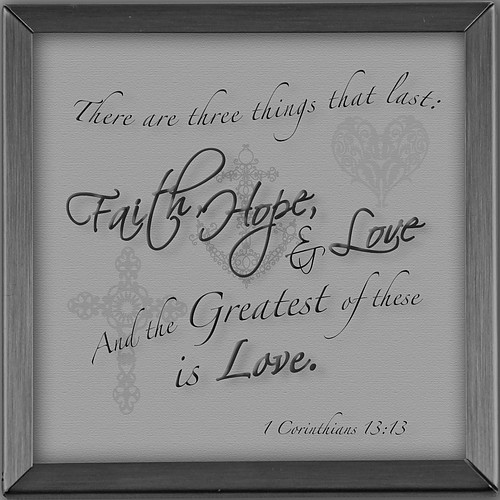 There are three things that last:
Faith, Hope,
& Love
And the Greatest of these
is Love.
1 Corinthians 13:13